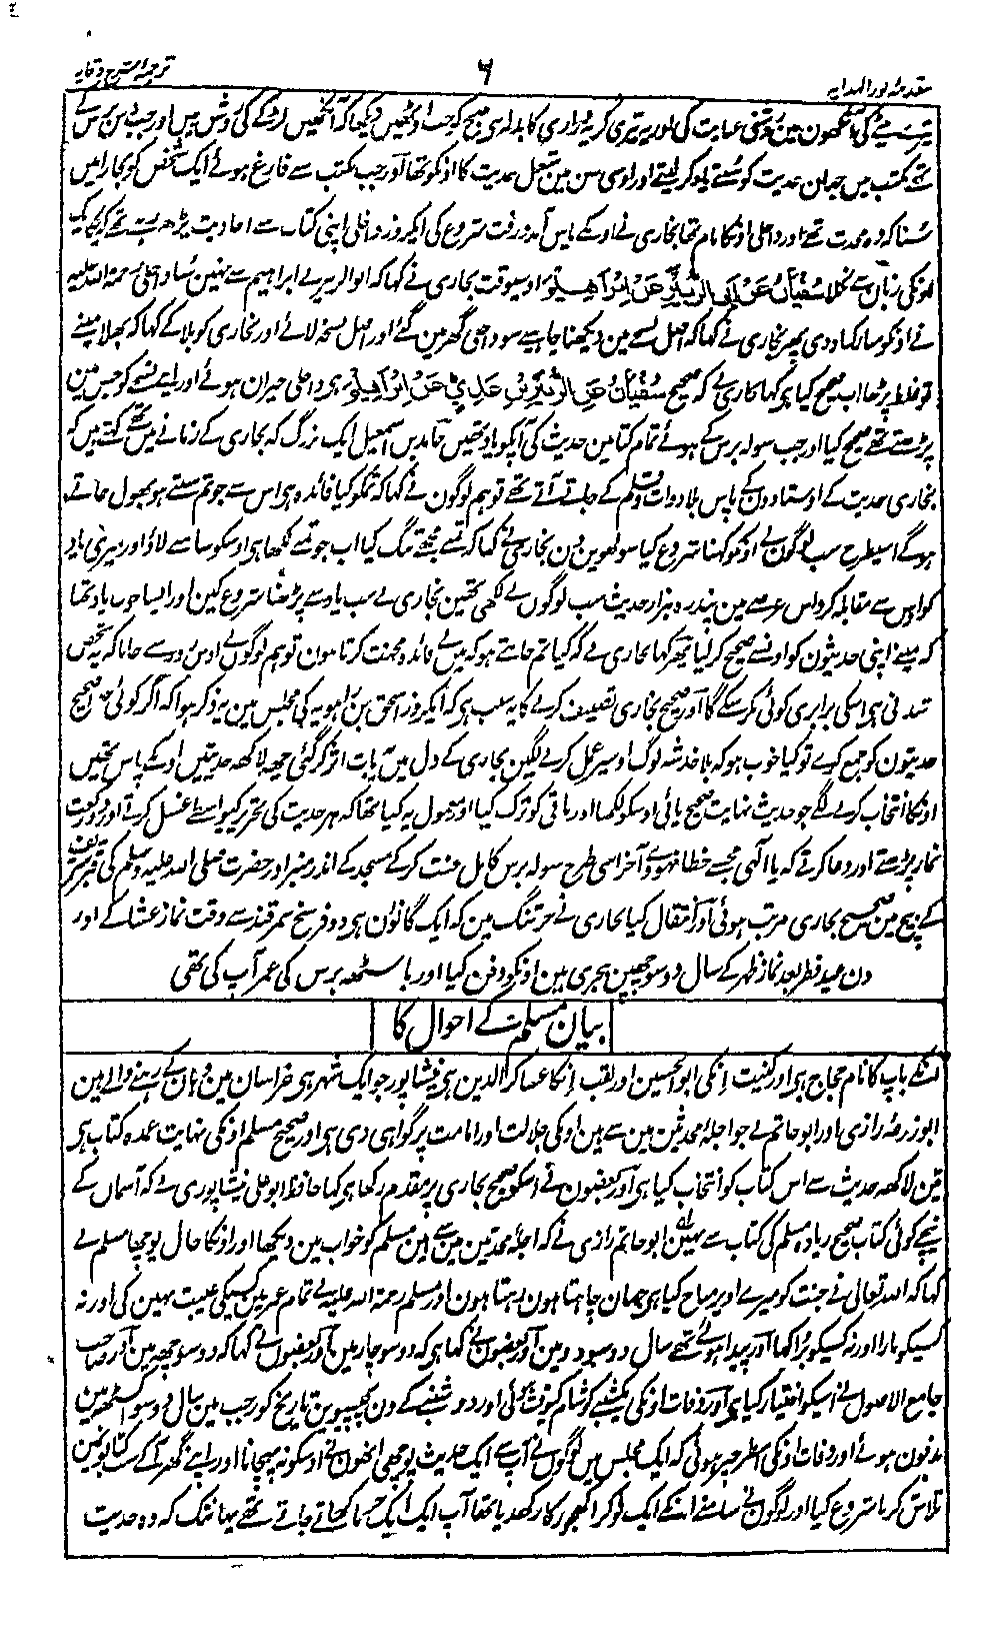 مقدمۂ نور الہدایہ
۶
ترجمۂ شرح وقایہ
تیرے بیٹے کی آنکھوں میں روشنی عنایت کی اور یہ تیری گریہ وزاری کا بدلا ہی صبح کو جب اوٹھیں دیکھا کہ آنکھیں لڑکے کی روشن ہیں اور جب دس برس کے
تھے مکتب میں جہاں حدیث کو سنتے یاد کر لیتے اور اوسی سن میں شغل حدیث کا اونکو تھا اور جب مکتب سے فارغ ہوئے ایک شخص کو بخارا میں
سنا کہ وہ محدث تھے اور داخلی اونکا نام تھا بخاری نے اونکے پاس آمد و رفت شروع کی ایک روز داخلی اپنی کتاب سے احادیث پڑھ رہے تھے کہ یکایک
اونکی زبان سے نکلا سُفْیَانُ عَنْ اَبِی الزُّبَیْرِ عَنْ اِبْرَاهِیْمَ اوسیوقت بخاری نے کہا کہ ابو الزبیر نے ابراہیم سے نہیں سنا داخلی رحمۃ اللہ علیہ
نے اونکو ساکت کر دی پھر بخاری نے کہا کہ اصل نسخے میں دیکھنا چاہیے سو داخلی گھر میں گئے اور اصل نسخہ لائے اور بخاری کو بلا کے کہا کہ بھلا مینے
تو غلط پڑھا اب صحیح کیا ہی کہا بخاری نے کہ صحیح سُفْیَانُ عَنِ الزُّبَیْرِ بْنِ عَدِیٍّ عَنْ اِبْرَاهِیْمَ ہی داخلی حیران ہوئے اور اپنے نسخے کو جس میں
پڑھتے تھے صحیح کیا اور جب سولہ برس کے ہوئے تمام کتابیں حدیث کی آپکو یاد تھیں حامد بن اسمعیل ایک بزرگ کہ بخاری کے زمانے میں تھے کہتے ہیں کہ
بخاری حدیث کے اوستادوں کے پاس بلا دوات و قلم کے جاتے آتے تھے تو ہم لوگوں نے کہا کہ تمکو کیا فائدہ ہی اس سے جو تم سنتے ہو بھول جاتے
ہوگے اسیطرح سب لوگوں نے اونکو کہنا شروع کیا سولھویں دن بخاری نے کہا کہ تمنے مجھے تنگ کیا اب جو تمنے لکھا ہی اوسکو سامنے لاؤ اور میری یاد
کو اوس سے مقابلہ کرو اس عرصے میں پندرہ ہزار حدیث سب لوگوں نے لکھی تھیں بخاری نے سب یاد سے پڑھنا شروع کیں اور ایسا خوب یاد تھا
کہ مینے اپنی حدیثوں کو اونسے صحیح کر لیا پھر کہا بخاری نے کہ کیا تم جانتے ہو کہ میں بے فائدہ محنت کرتا ہوں تو ہم لوگوں نے اوس روز سے جانا کہ یہ شخص
شدنی ہی اسکی برابری کوئی نکر سکے گا اور صحیح بخاری تصنیف کرنے کا یہ سبب ہی کہ ایک روز اسحق بن راہویہ کی مجلس میں یہ ذکر ہوا کہ اگر کوئی صحیح
حدیثوں کو جمع کرے تو کیا خوب ہو کہ بلا خدشہ لوگ اوسپر عمل کرنے لگیں بخاری کے دل میں یہ بات اثر کر گئی چھہ لاکھہ حدیثیں اونکے پاس تھیں
اونکا انتخاب کرنے لگے جو حدیث نہایت صحیح پائی اوسکو لکھا اور باقی کو ترک کیا اور معمول یہ کیا تھا کہ ہر حدیث کی تحریر کیواسطے غسل کرتے اور دو رکعت
نماز پڑھتے اور دعا کرتے کہ یا الٰہی مجھسے خطا نہووے آخر اسی طرح سولہ برس کامل محنت کر کے مسجد کے اندر منبر اور حضرت صلی اللہ علیہ وسلم کی قبر شریف
کے بیچ میں صحیح بخاری مرتب ہوئی اور انتقال کیا بخاری نے خرتنگ میں کہ ایک گانوں ہی دو فرسخ سمرقند سے وقت نماز عشا کے اور
دن عید فطر بعد نماز ظہر کے سال دو سو چھپن ہجری میں اونکو دفن کیا اور باسٹھہ برس کی عمر آپ کی تھی
بیان مسلم کے احوال کا
انکے باپ کا نام حجاج ہی اور کنیت انکی ابو الحسین اور لقب انکا عساکر الدین ہی نیشاپور جو ایک شہر ہی خراسان میں وہاں کے رہنے والے ہیں
ابو زرعہ رازی اور ابو حاتم نے جو اجلۂ محدثین میں سے ہیں اونکی جلالت اور امامت پر گواہی دی ہی اور صحیح مسلم اونکی نہایت عمدہ کتاب ہی
تین لاکھہ حدیث سے اس کتاب کو انتخاب کیا ہی اور بعضوں نے اسکو صحیح بخاری پر مقدم رکھا ہی کہا حافظ ابو علی نیشاپوری نے کہ آسمان کے
نیچے کوئی کتاب صحیح زیادہ مسلم کی کتاب سے نہیں ابو حاتم رازی نے کہ اجلۂ محدثین میں سے ہیں مسلم کو خواب میں دیکھا اور اونکا حال پوچھا مسلم نے
کہا کہ اللہ تعالٰی نے جنت کو میرے اوپر مباح کیا ہی جہاں چاہتا ہوں رہتا ہوں اور مسلم رحمۃ اللہ علیہ نے تمام عمر میں کسیکی غیبت نہیں کی اور نہ
کسیکو مارا اور نہ کسیکو بُرا کہا اور پیدا ہوئے تھے سال دو سو دو میں اور بعضوں نے کہا ہی کہ دو سو چار میں اور بعضوں نے کہا کہ دو سو چھہ میں اور صاحب
جامع الاصول نے اسیکو اختیار کیا ہی اور وفات اونکی یکشنبے کو شام کیوقت ہوئی اور دو شنبے کے دن پچیسویں تاریخ کو رجب میں سال دو سو اکسٹھہ میں
مدفون ہوئے اور وفات اونکی اسطرحپر ہوئی کہ ایک مجلس میں لوگوں نے آپسے ایک حدیث پوچھی انھوں نے اوسکو نہ پہچانا اور اپنے گھر آ کے سب کتابونمیں
تلاش کرنا شروع کیا اور لوگوں نے سامنے انکے ایک ٹوکرا کھجور کا رکھدیا تھا آپ ایک ایک خرما کھاتے جاتے تھے یہانتک کہ وہ حدیث